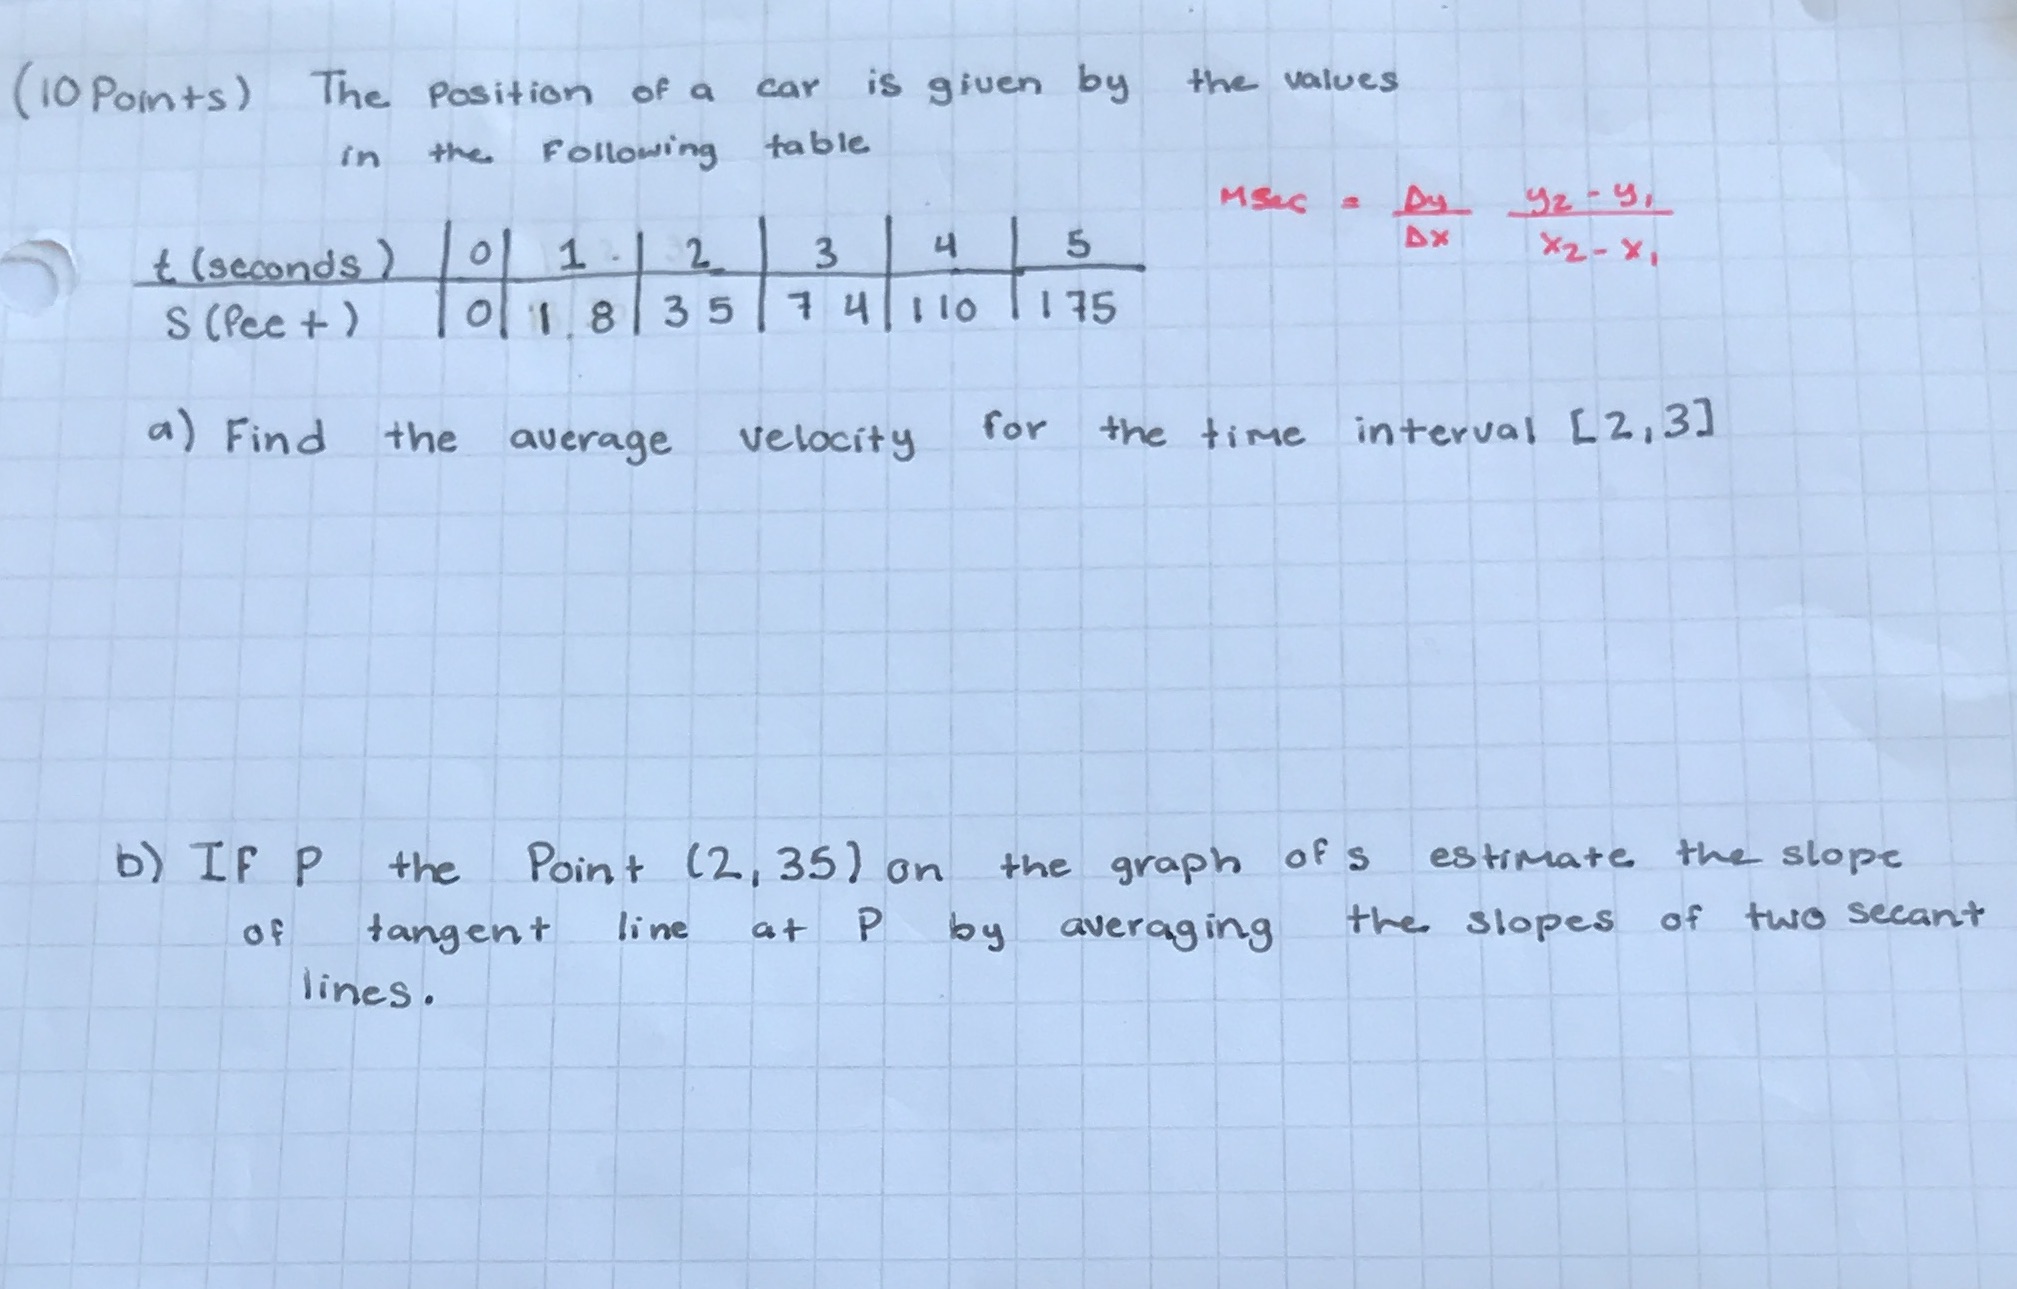 (10 Points) The Position of a car is given by the values
in the Following table
Msec = Δy/Δx y₂-y₁/x₂-x₁
t (seconds) 0 1 2 3 4 5
S (feet) 0 18 35 74 110 175
a) Find the average velocity for the time interval [2,3]
b) IF P the Point (2,35) on the graph of s estimate the slope
of tangent line at P by averaging the slopes of two secant
lines.